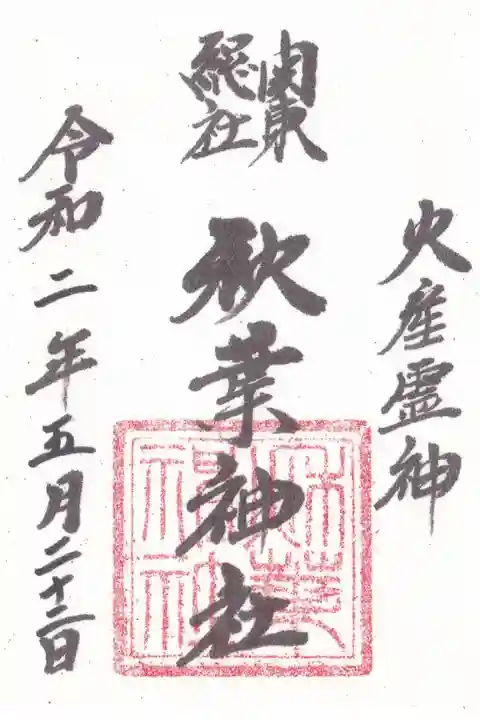 火産霊神
関東
総社
秋葉神社
令和二年五月二十三日
秋葉
神社